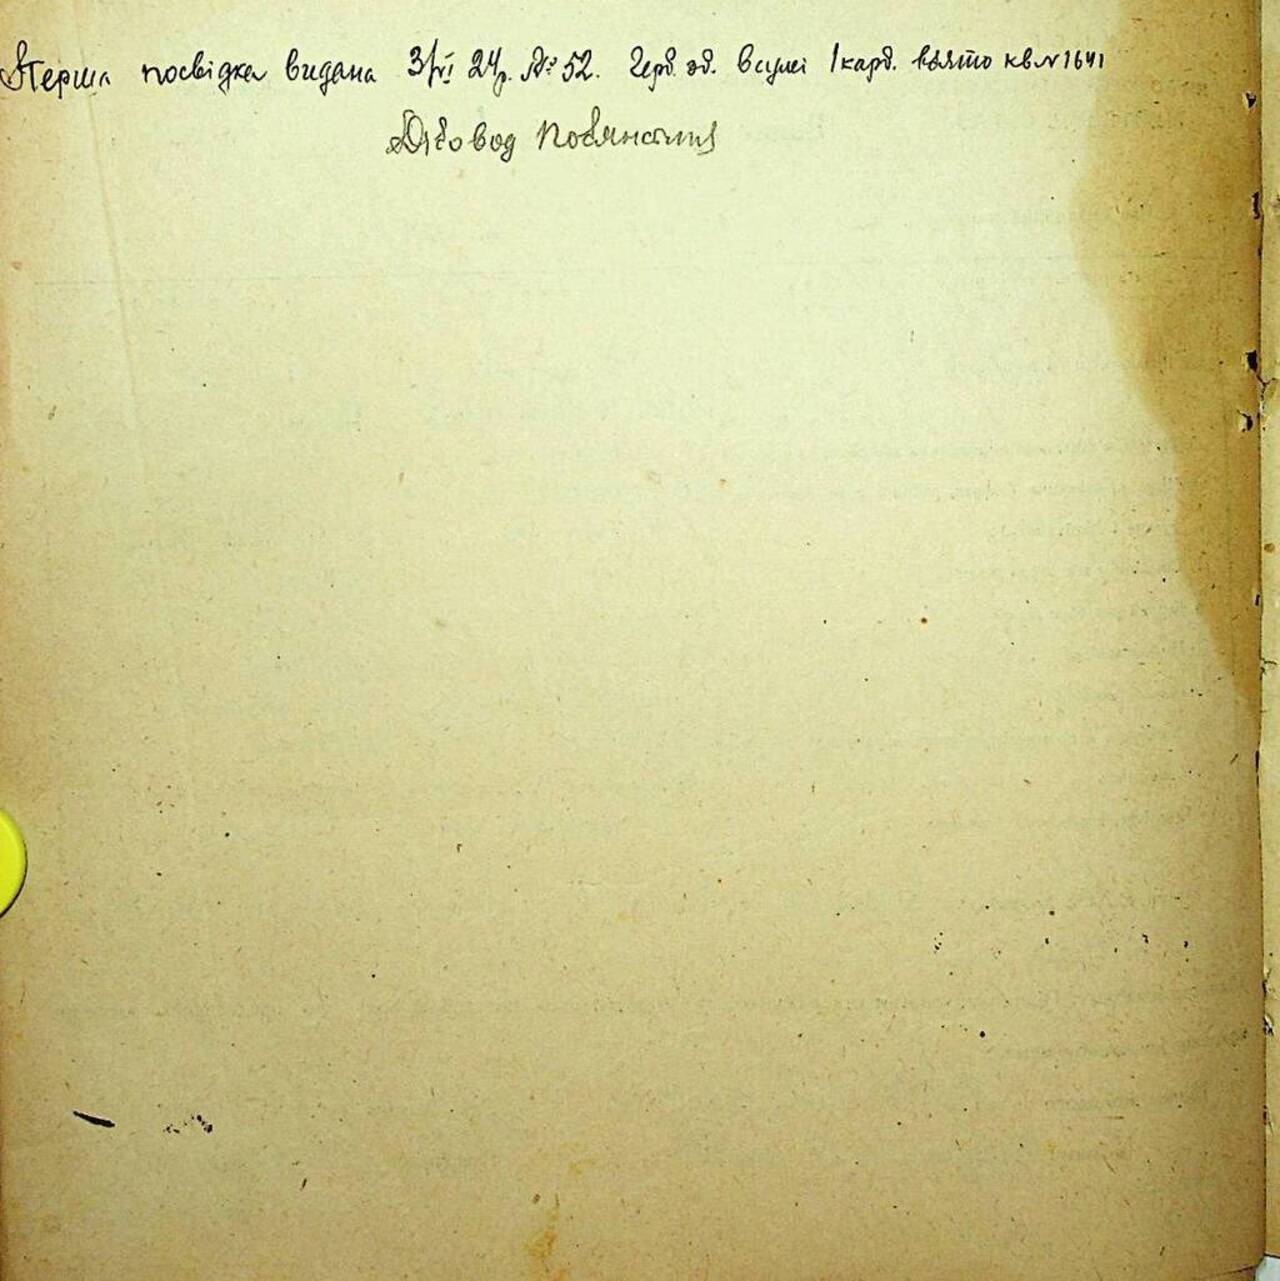 Перша посвідка видана 3/VI 24р. № 52. Герб. зб. в сумі 1 карб. взято кв. № 1641
Діловод